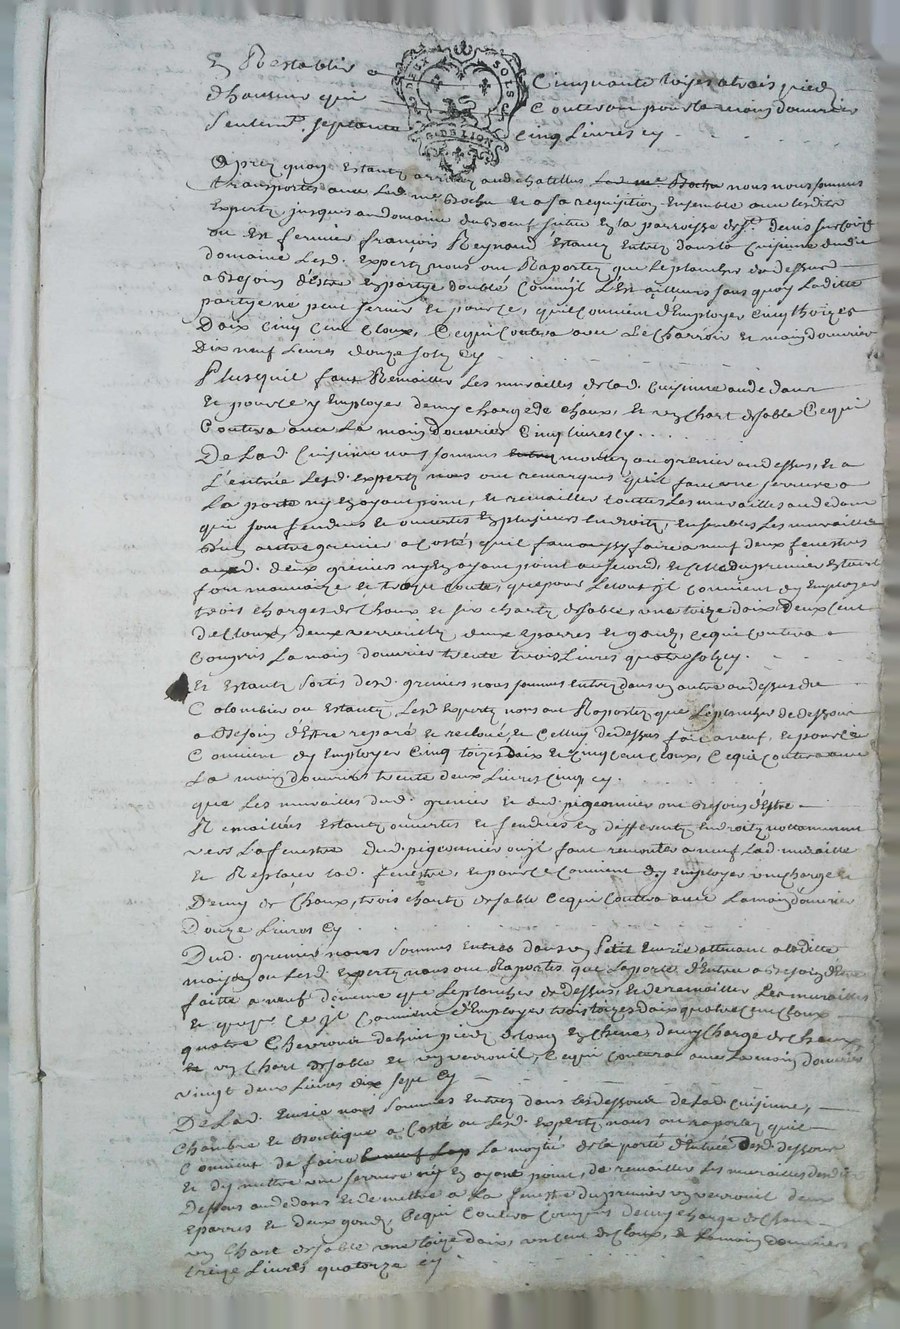 Restablir cinquante toises et trois pieds
d'hauteur qui couteron pour la main d'ouvrier
seulemt. septante cinq Livres cy
DEUX SOLS
G. DE LION
Aprez quoy Estants arrivez aud chatellus nous nous sommes
transportes avec Led. me Rochu et a sa requisition Ensemble avec lesdits
Experts, jusques au domaine du Boeuf scitue En la parroisse de St. denis sur Coize
ou Est fermier francois Reynaud, Estants Entrez dans la Cuisinne dudit
domaine Lesd. Experts nous ont Raportez que Le plancher du dessus
a Besoin d'Estre En partye doublé Comm'il L'Est ailleurs sans quoy Laditte
partye ne peut servir Et pour ce, qu'il convient d'Employer Cinq thoizes
D'aix Cinq Cent Cloux, Cequi Coutera avec Le Charroir et main d'ouvrier
Dix neuf Livres douze solz Cy
Plus quil faut Remailler Les murailles de lad. Cuisinne audedans
Et pour ce y Employer demy charge de chaux, Et un Chart de sable Cequi
Coutera avec La main d'ouvrier Cinq livres Cy
De Lad. Cuisinne nous sommes montez au grenier au dessus, Et a
L'entrée Lesd. Experts nous ont remarqué qu'il faut une serrure a
La porte n'y En ayant point, Et remailler toutes Les murailles audedans
qui sont fendues Et ouvertes En plusieurs Endroits, Ensembles Les murailles
D'un autre grenier a Costé, qu'il faut aussy faire a neuf deux fenestres
auxd. deux greniers n'y En ayant point au second, Et celle du premier Estant
fort mauvaize et trop Courte, que pour Le tout jl Convient dy Employer
trois charges de Chaux Et six charts de sable, une toize d'aix, deux Cent
de Cloux, deux verrouils, deux Eparres Et gonds, Cequi Coutera
Compris La main d'ouvrier trente trois Livres quatre solz Cy.
Et Estants sortis desd. greniers nous sommes Entrez dans un autre audessus du
Colombier ou Estants, Lesd. Experts nous ont Raportez que Le plancher de dessous
a Besoin d'Estre reparé Et recloué, Et Celluy de dessus fait a neuf, Et pour ce
Convient dy Employer Cinq toizes d'aix Et Cinq Cent Cloux, Cequi Coutera avec
La main d'ouvrier trente deux Livres Cinq Cy.
que Les murailles dud. grenier Et dud. pigeonnier ont Besoin d'Estre
Remaillées Estants ouvertes Et fendues En differents Endroits nottamment
vers La fenestre dud. pigeonnier ou jl faut remonter a neuf Lad. muraille
Et Replacer lad. fenestre, Et pour ce Convient dy Employer une Charge
Demy de Chaux, trois charts de sable Cequi Coutera avec La main d'ouvrier
Douze Livres Cy
Dud. grenier nous sommes Entrés dans un petit Ecurie attenant a laditte
maison ou Lesd. Experts nous ont Raportés que La porte d'Entrée a Besoin d'Estre
faitte a neuf de meme que Le plancher de dessus, Et de remailler Les murailles
Et que pour ce jl Convient d'Employer trois toizes d'aix quatre Cent Cloux
quatre Chevrons de huit pieds de long En Chene, demy Charge de Chaux,
un Chart de sable Et un verrouil, Cequi Coutera avec La main d'ouvrier
vingt deux Livres dix sept Cy
De Lad. Ecurie nous sommes Entrez dans Les dessous de Lad. Cuisinne,
Chambre Et Boutique a Costé ou Lesd. Experts nous ont raportez qu'il
Convient de faire La moytié de la porte d'Entrée desd. dessous
Et dy mettre une serrure n'y En ayant point, de remailler Les murailles desdits
Dessous audedans Et de mettre a La fenestre du premier un verrouil deux
Eparres Et deux gonds, Cequi Coutera Compris demy charge de Chaux
un Chart de sable une toize d'aix, un Cent de Cloux, & La main d'ouvriers
treize Livres quatorze Cy